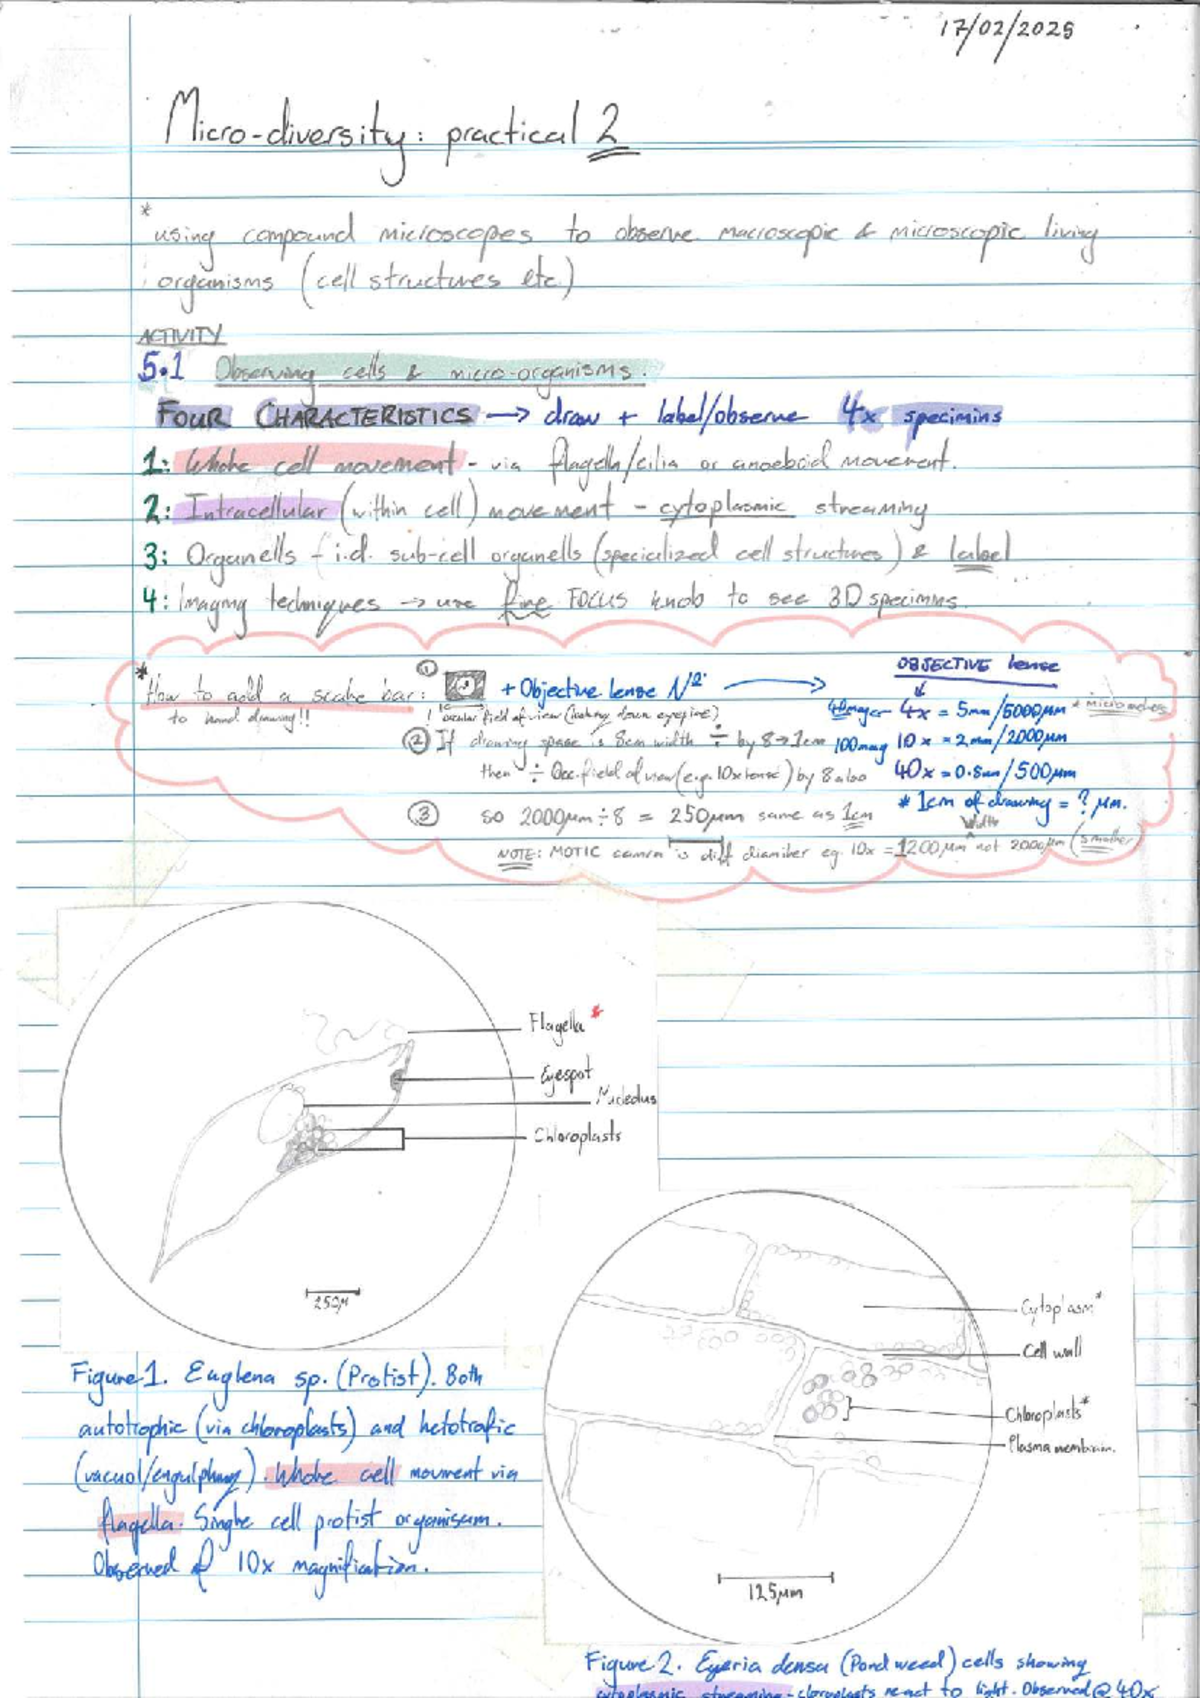 17/02/2025
Micro-diversity: practical 2
* using compound microscopes to observe macroscopic & microscopic living
organisms (cell structures etc.)
ACTIVITY
5.1 Observing cells & micro-organisms.
FOUR CHARACTERISTICS → draw + label/observe 4x specimins
1: Whole cell movement - via flagella/cilia or amoeboid movement.
2: Intracellular (within cell) movement - cytoplasmic streaming
3: Organells - i.d. sub-cell organells (specialized cell structures) & label
4: Imaging techniques → use fine FOCUS knob to see 3D specimins.
* How to add a scale bar:
to hand drawing!!
① + Objective lense Nº
ocular field of view (looking down eyepiece)
② If drawing space is 8cm width ÷ by 8 → 1cm
then ÷ Occ. field of view (e.g. 10x lense) by 8 also
③ so 2000µm ÷ 8 = 250µm same as 1cm
OBJECTIVE lense
40mag or 4x = 5mm/5000µm * micrometers
100mag 10x = 2mm/2000µm
40x = 0.5mm/500µm
* 1cm of drawing = ? µm.
width
NOTE: MOTIC camera is diff diamiter eg. 10x = 1200µm not 2000µm (smaller)
Flagella *
Eyespot
Nucleolus
Chloroplasts
250µ
Figure 1. Euglena sp. (Protist). Both
autotrophic (via chloroplasts) and hetotrofic
(vacuol/engulphing). Whole cell movment via
flagella. Single cell protist organisum.
Observed @ 10x magnification.
Cytoplasm *
Cell wall
Chloroplasts *
Plasma membrain.
125µm
Figure 2. Egeria densa (Pond weed) cells showing
cytoplasmic streaming - cloroplasts react to light. Observed @ 40x